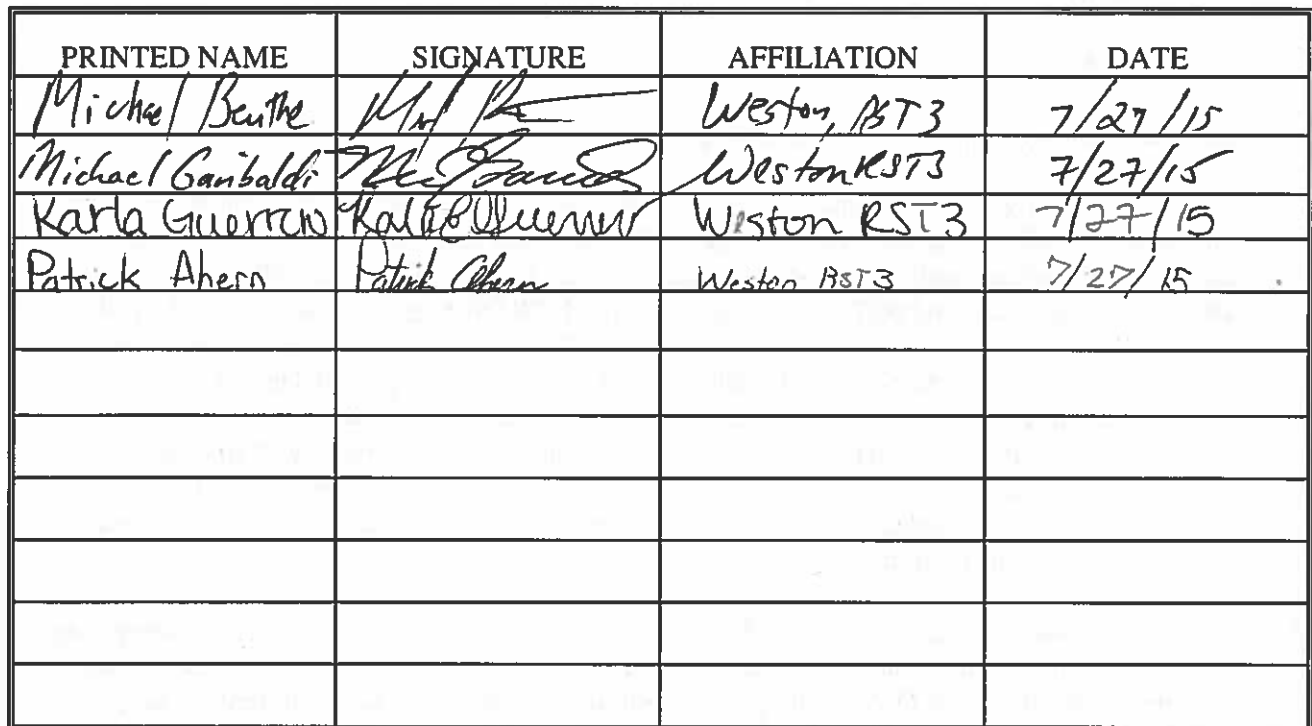 PRINTED NAME SIGNATURE AFFILIATION DATE
Michael Beuthe Weston, RST3 7/27/15
Michael Garibaldi Weston RST3 7/27/15
Karla Guerrero Weston RST3 7/27/15
Patrick Ahern Patrick Ahern Weston RST3 7/27/15